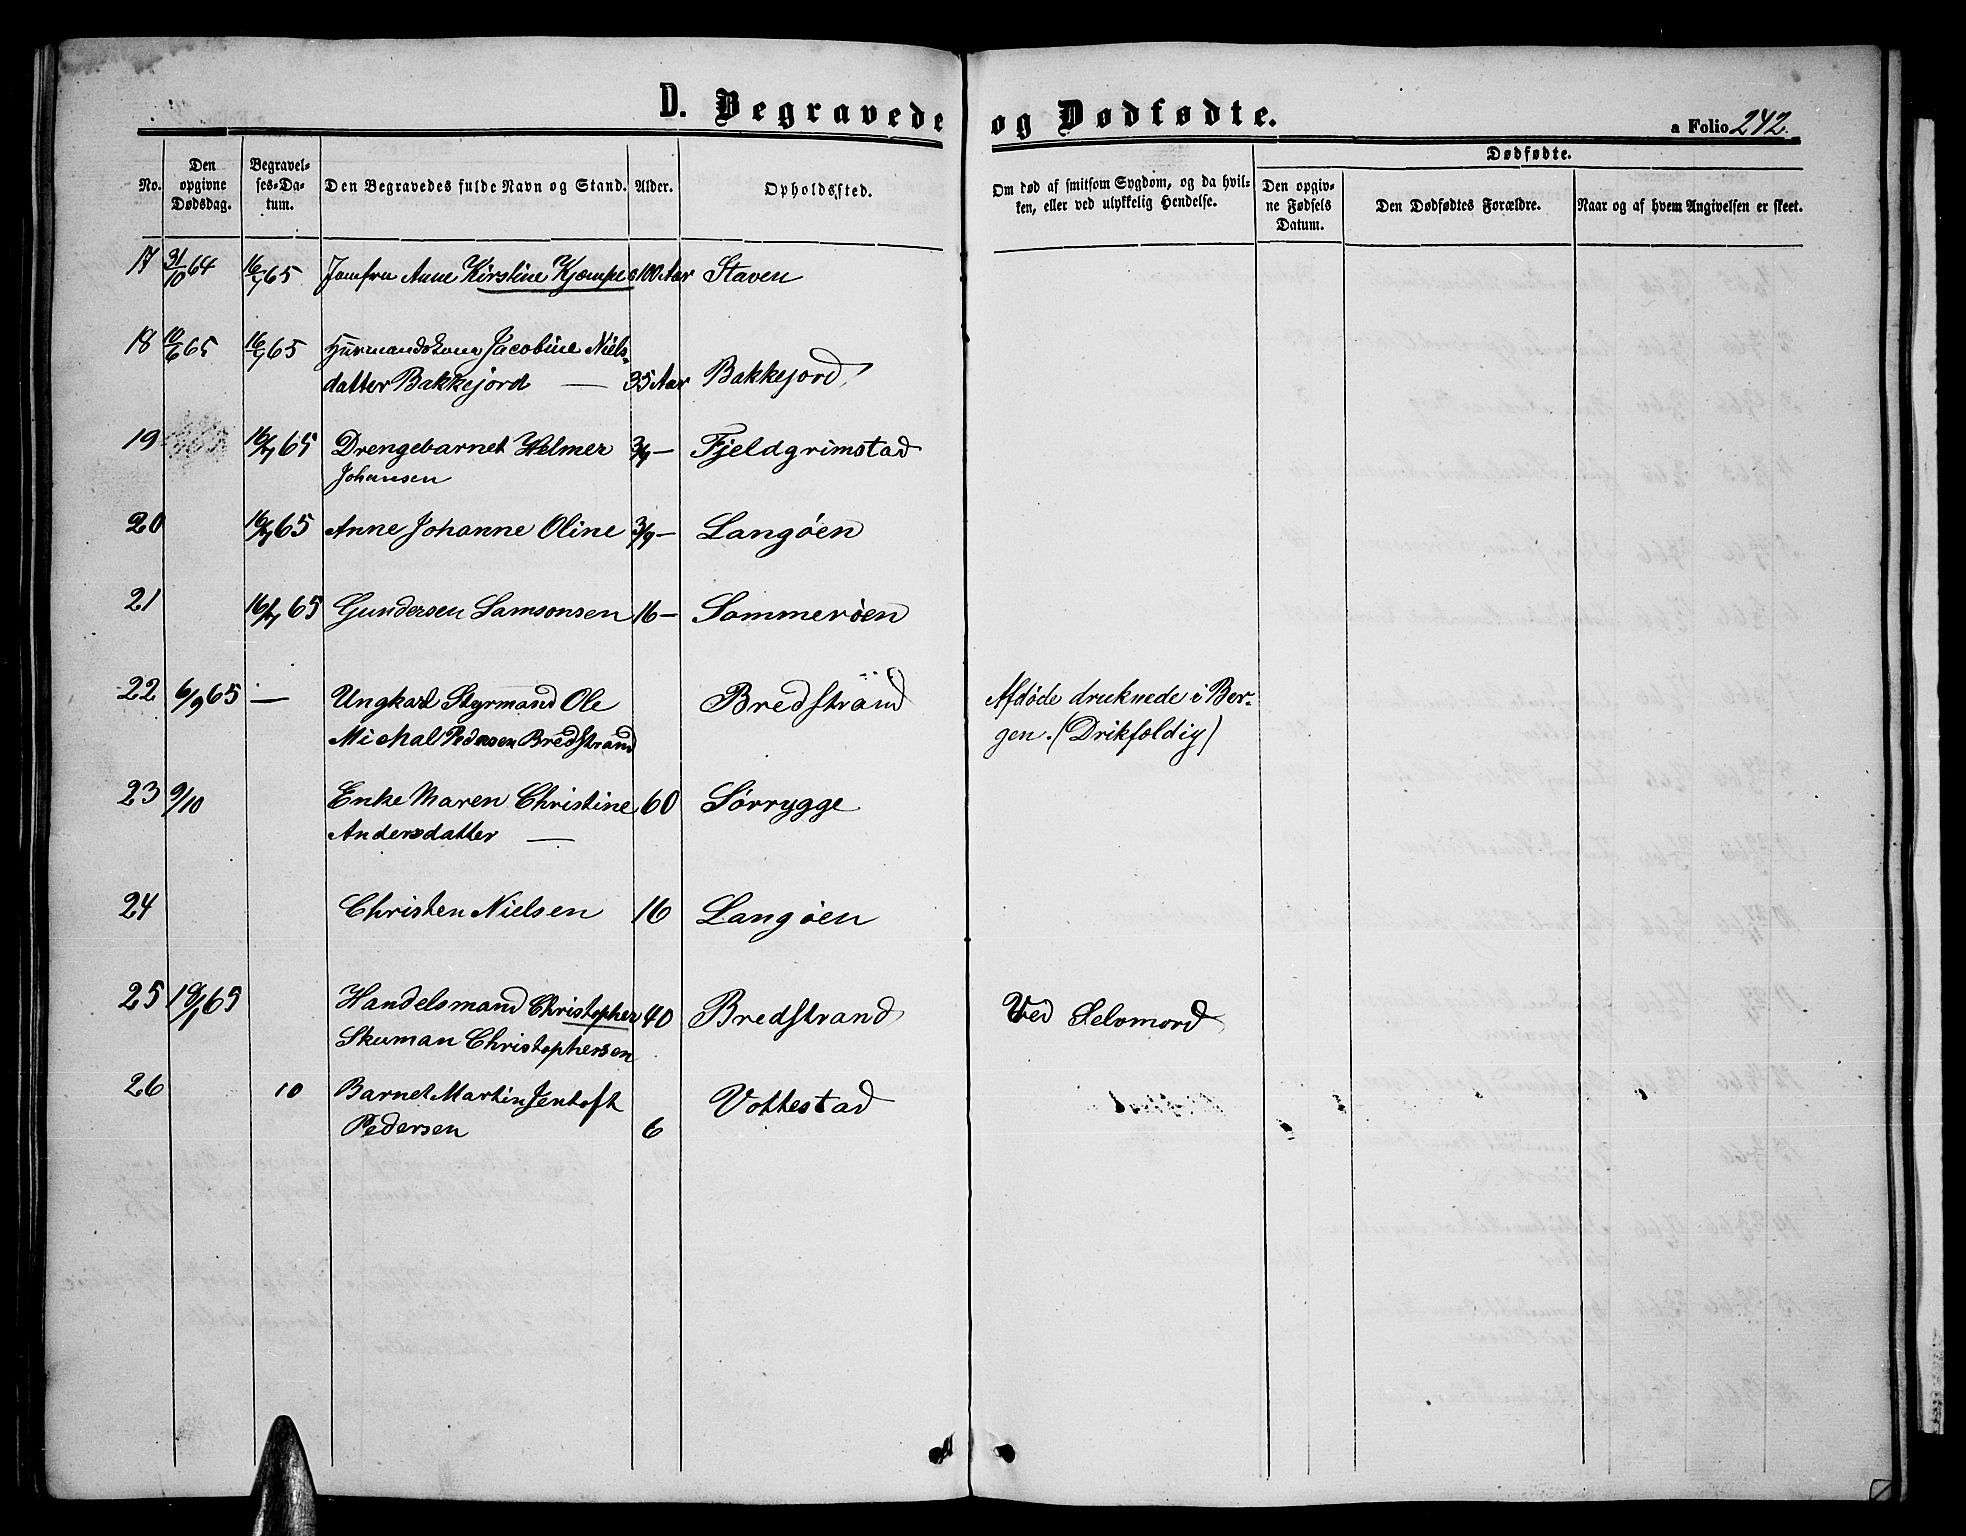 D. Begravede og Dødfødte.
a Folio 242.
No.
Den opgivne Dødsdag.
Begravelses-Datum.
Den Begravedes fulde Navn og Stand.
Alder.
Opholdssted.
Om død af smitsom Sygdom, og da hvilken, eller ved ulykkelig Hendelse.
Dødfødte.
Den opgivne Fødsels Datum.
Den Dødfødtes Forældre.
Naar og af hvem Angivelsen er skeet.
17 31/10 64 16/7 65 Jomfru Anne Kirstine Kjæmpe 100 Aar Staven
18 10/6 65 16/7 65 Huusmandskone Jacobine Niels-
datter Bakkejord — 35 Aar Bakkejord
19 16/7 65 Drengebarnet Helmer 3/4 — Fjeldgrimstad
Johansen
20 16/7 65 Anne Johanne Oline 3/4 — Langøen
21 16/7 65 Gundersen Samsonsen 16 — Sommerøen
22 6/9 65 — Ungkarl Styrmand Ole Bredstrand Afdøde druknede i Ber-
Michal Pedersen Bredstrand gen. (Drikfældig)
23 9/10 Enke Maren Christine 60 Sørrygge
Andersdatter —
24 Christen Nielsen 16 Langøen
25 65 Handelsmand Christopher 40 Bredstrand Ved Selvmord
Skuman Christophersen
26 10 Barnet Martin Jentoft Vottestad
Pedersen 6